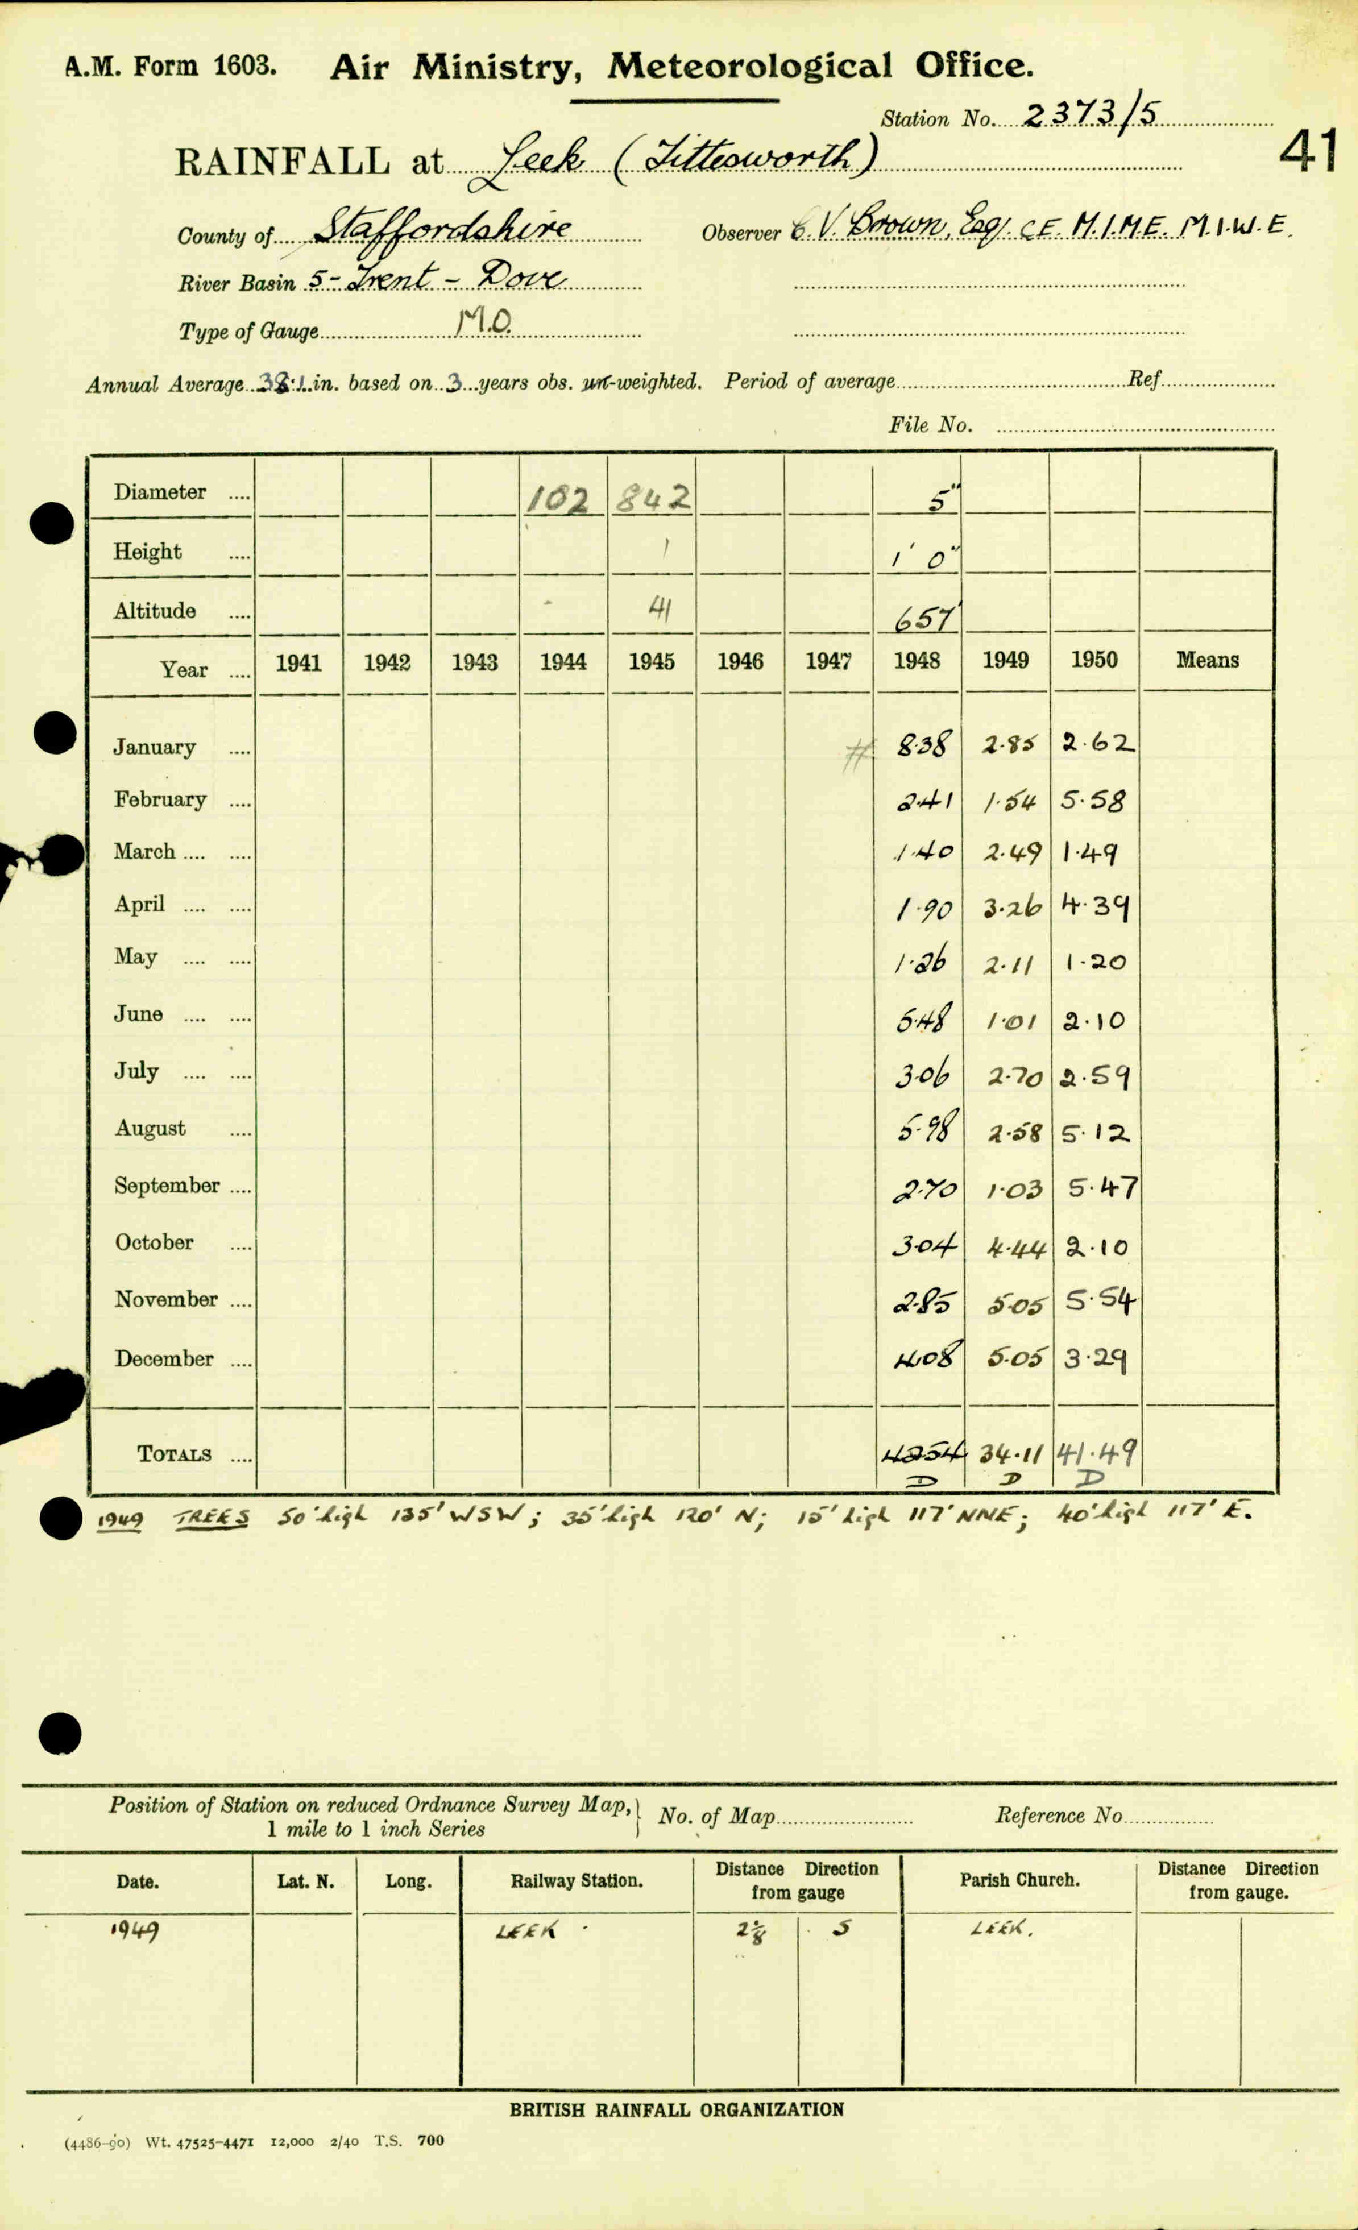 A.M. Form 1603. Air Ministry, Meteorological Office.
Station No. 2373/5
41
RAINFALL at Leek (Tittesworth)
County of Staffordshire Observer C. V. Brown, Esq. C.E. M.I.M.E. M.I.W.E.
River Basin 5 - Trent - Dove
Type of Gauge M.O.
Annual Average 38.1 in. based on 3 years obs. un-weighted. Period of average Ref
File No.
Diameter .... 102 842 5"
Height .... 1 1' 0"
Altitude .... 41 657'
Year .... 1941 1942 1943 1944 1945 1946 1947 1948 1949 1950 Means
January .... # 8.38 2.85 2.62
February .... 2.41 1.54 5.58
March .... .... 1.40 2.49 1.49
April .... .... 1.90 3.26 4.39
May .... .... 1.26 2.11 1.20
June .... .... 5.48 1.01 2.10
July .... .... 3.06 2.70 2.59
August .... 5.98 2.58 5.12
September .... 2.70 1.03 5.47
October .... 3.04 4.44 2.10
November .... 2.85 5.05 5.54
December .... 4.08 5.05 3.29
TOTALS .... 42.54 34.11 41.49
D D D
1949 TREES 50' high 135' WSW; 35' high 120' N; 15' high 117' NNE; 40' high 117' E.
Position of Station on reduced Ordnance Survey Map, No. of Map Reference No
1 mile to 1 inch Series
Date. Lat. N. Long. Railway Station. Distance Direction from gauge Parish Church. Distance Direction from gauge.
1949 LEEK 2⅛ S LEEK.
BRITISH RAINFALL ORGANIZATION
(4486-90) Wt. 47525-4471 12,000 2/40 T.S. 700